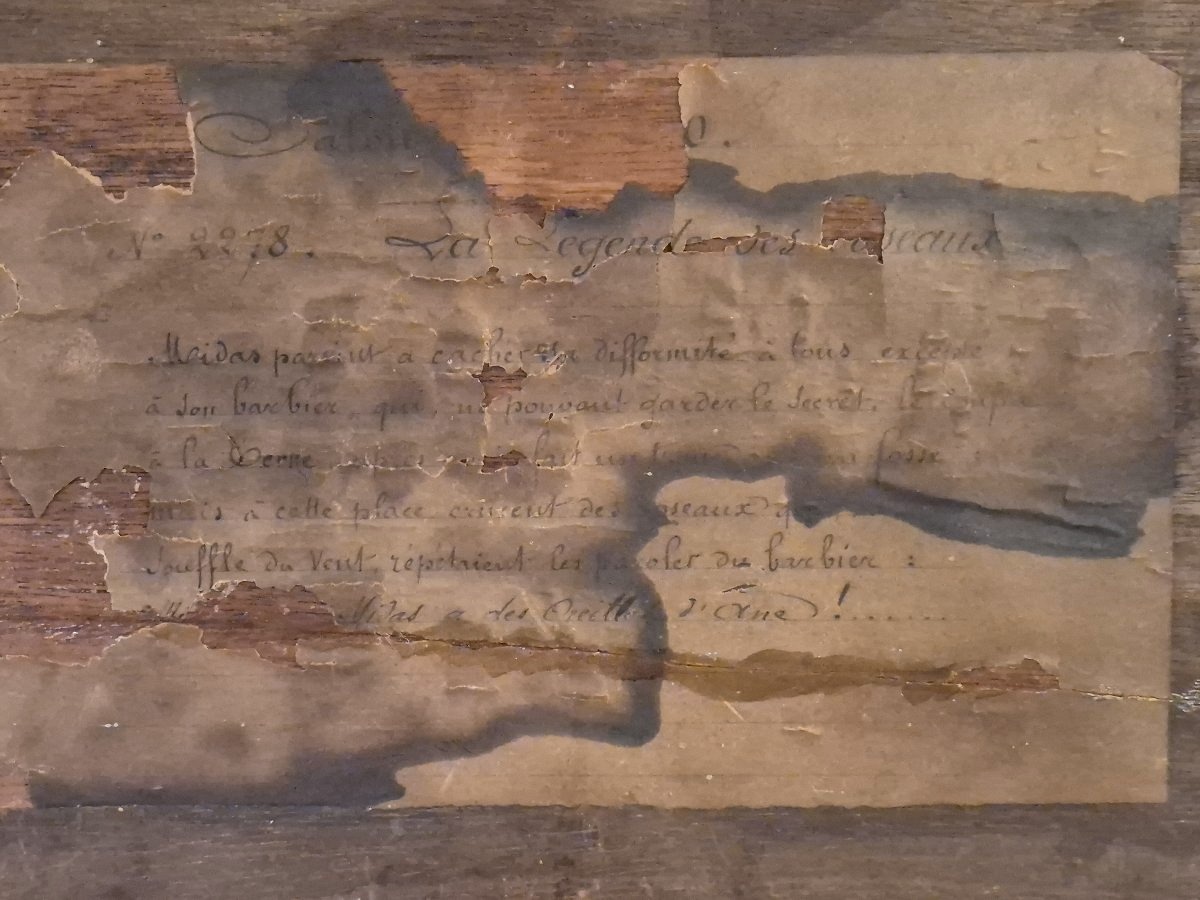 Salon 0.
N° 2278. La Légende des Roseaux
Midas parvint a cacher sa difformité à tous excepté
à son barbier, qui, ne pouvant garder le secret, le
à la Terre fait un trou
mais à cette place crurent des roseaux
souffle du Vent, répétaient les paroles du barbier :
Midas a des Oreilles d'Ane !........